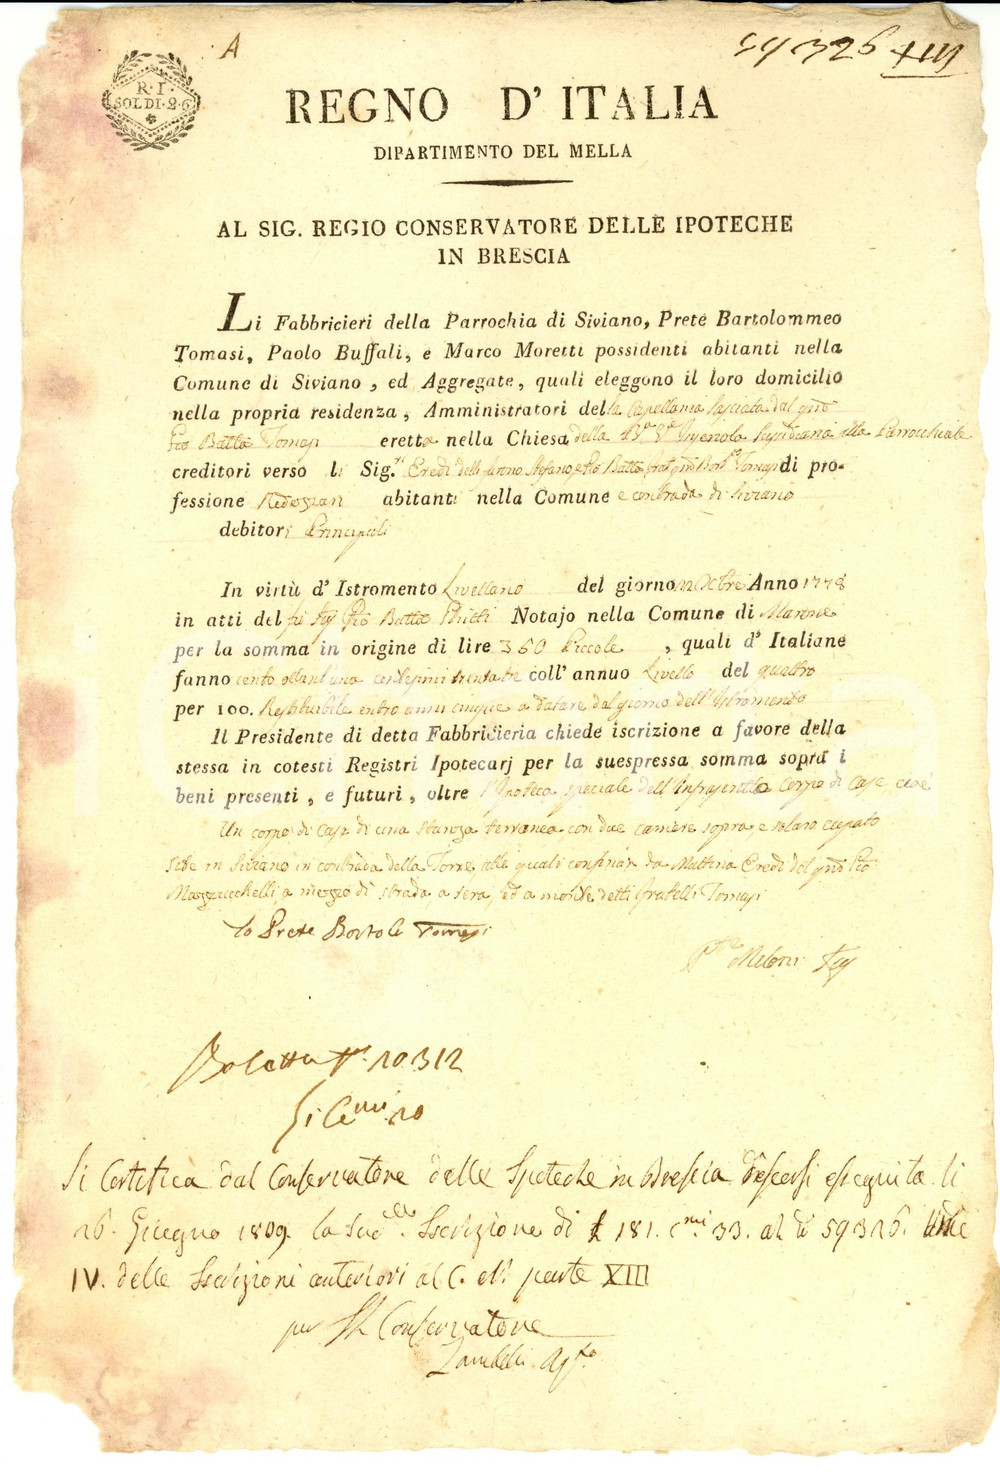 A
59326 XIII
R. I.
SOLDI. 2. 6
REGNO D' ITALIA
DIPARTIMENTO DEL MELLA
AL SIG. REGIO CONSERVATORE DELLE IPOTECHE
IN BRESCIA
Li Fabbricieri della Parrochia di Siviano, Prete Bartolommeo
Tomasi, Paolo Buffali, e Marco Moretti possidenti abitanti nella
Comune di Siviano, ed Aggregate, quali eleggono il loro domicilio
nella propria residenza, Amministratori della Capellania lasciata dal qm
Gio Batta Tomasi eretta nella Chiesa della Bta Vne alla Parrochiale
creditori verso li Sig.ri Eredi Stefano, e Gio Batta Tomasi di pro-
fessione abitanti nella Comune e contrada di Siviano
debitori Principali
In virtù d' Istromento Livellario del giorno Anno 1778
in atti del Gio Batta Notajo nella Comune di Marone
per la somma in origine di lire 360 Piccole, quali d' Italiane
fanno cento ottant'una centesimi trentatre coll' annuo Livello del quattro
per 100. Restituibile entro anni cinque a datare dal giorno dell'Istromento
Il Presidente di detta Fabbricieria chiede iscrizione a favore della
stessa in cotesti Registri Ipotecarj per la suespressa somma sopra i
beni presenti, e futuri, oltre l'Ipoteca speciale dell'Infrascritto Corpo di Case, cioè
Un corpo di case di una stanza terranea con due camere sopra, e solaro cupato
site in Siviano in contrada della Torre alle quali confina da Mattina Eredi del qm Gio
Mazzucchelli, a mezzo dì strada, a sera, ed a monte detti Fratelli Tomasi
Io Prete Bortolo Tomasi
Boletta N. 10312
Si Cmi 20
Si Certifica dal Conservatore delle Ipoteche in Brescia essersi eseguita li
26. Giugno 1809. la sudella Iscrizione di £ 181. cmi 33. al N 59326.
IV. delle Iscrizioni anteriori al C. N. parte XIII
per Il Conservatore
Zambelli Agto